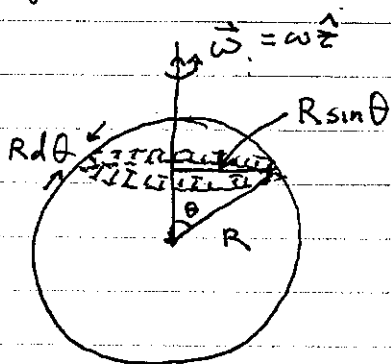 $\vec{\omega} = \omega \hat{z}$
R sin θ
R d θ
θ
R